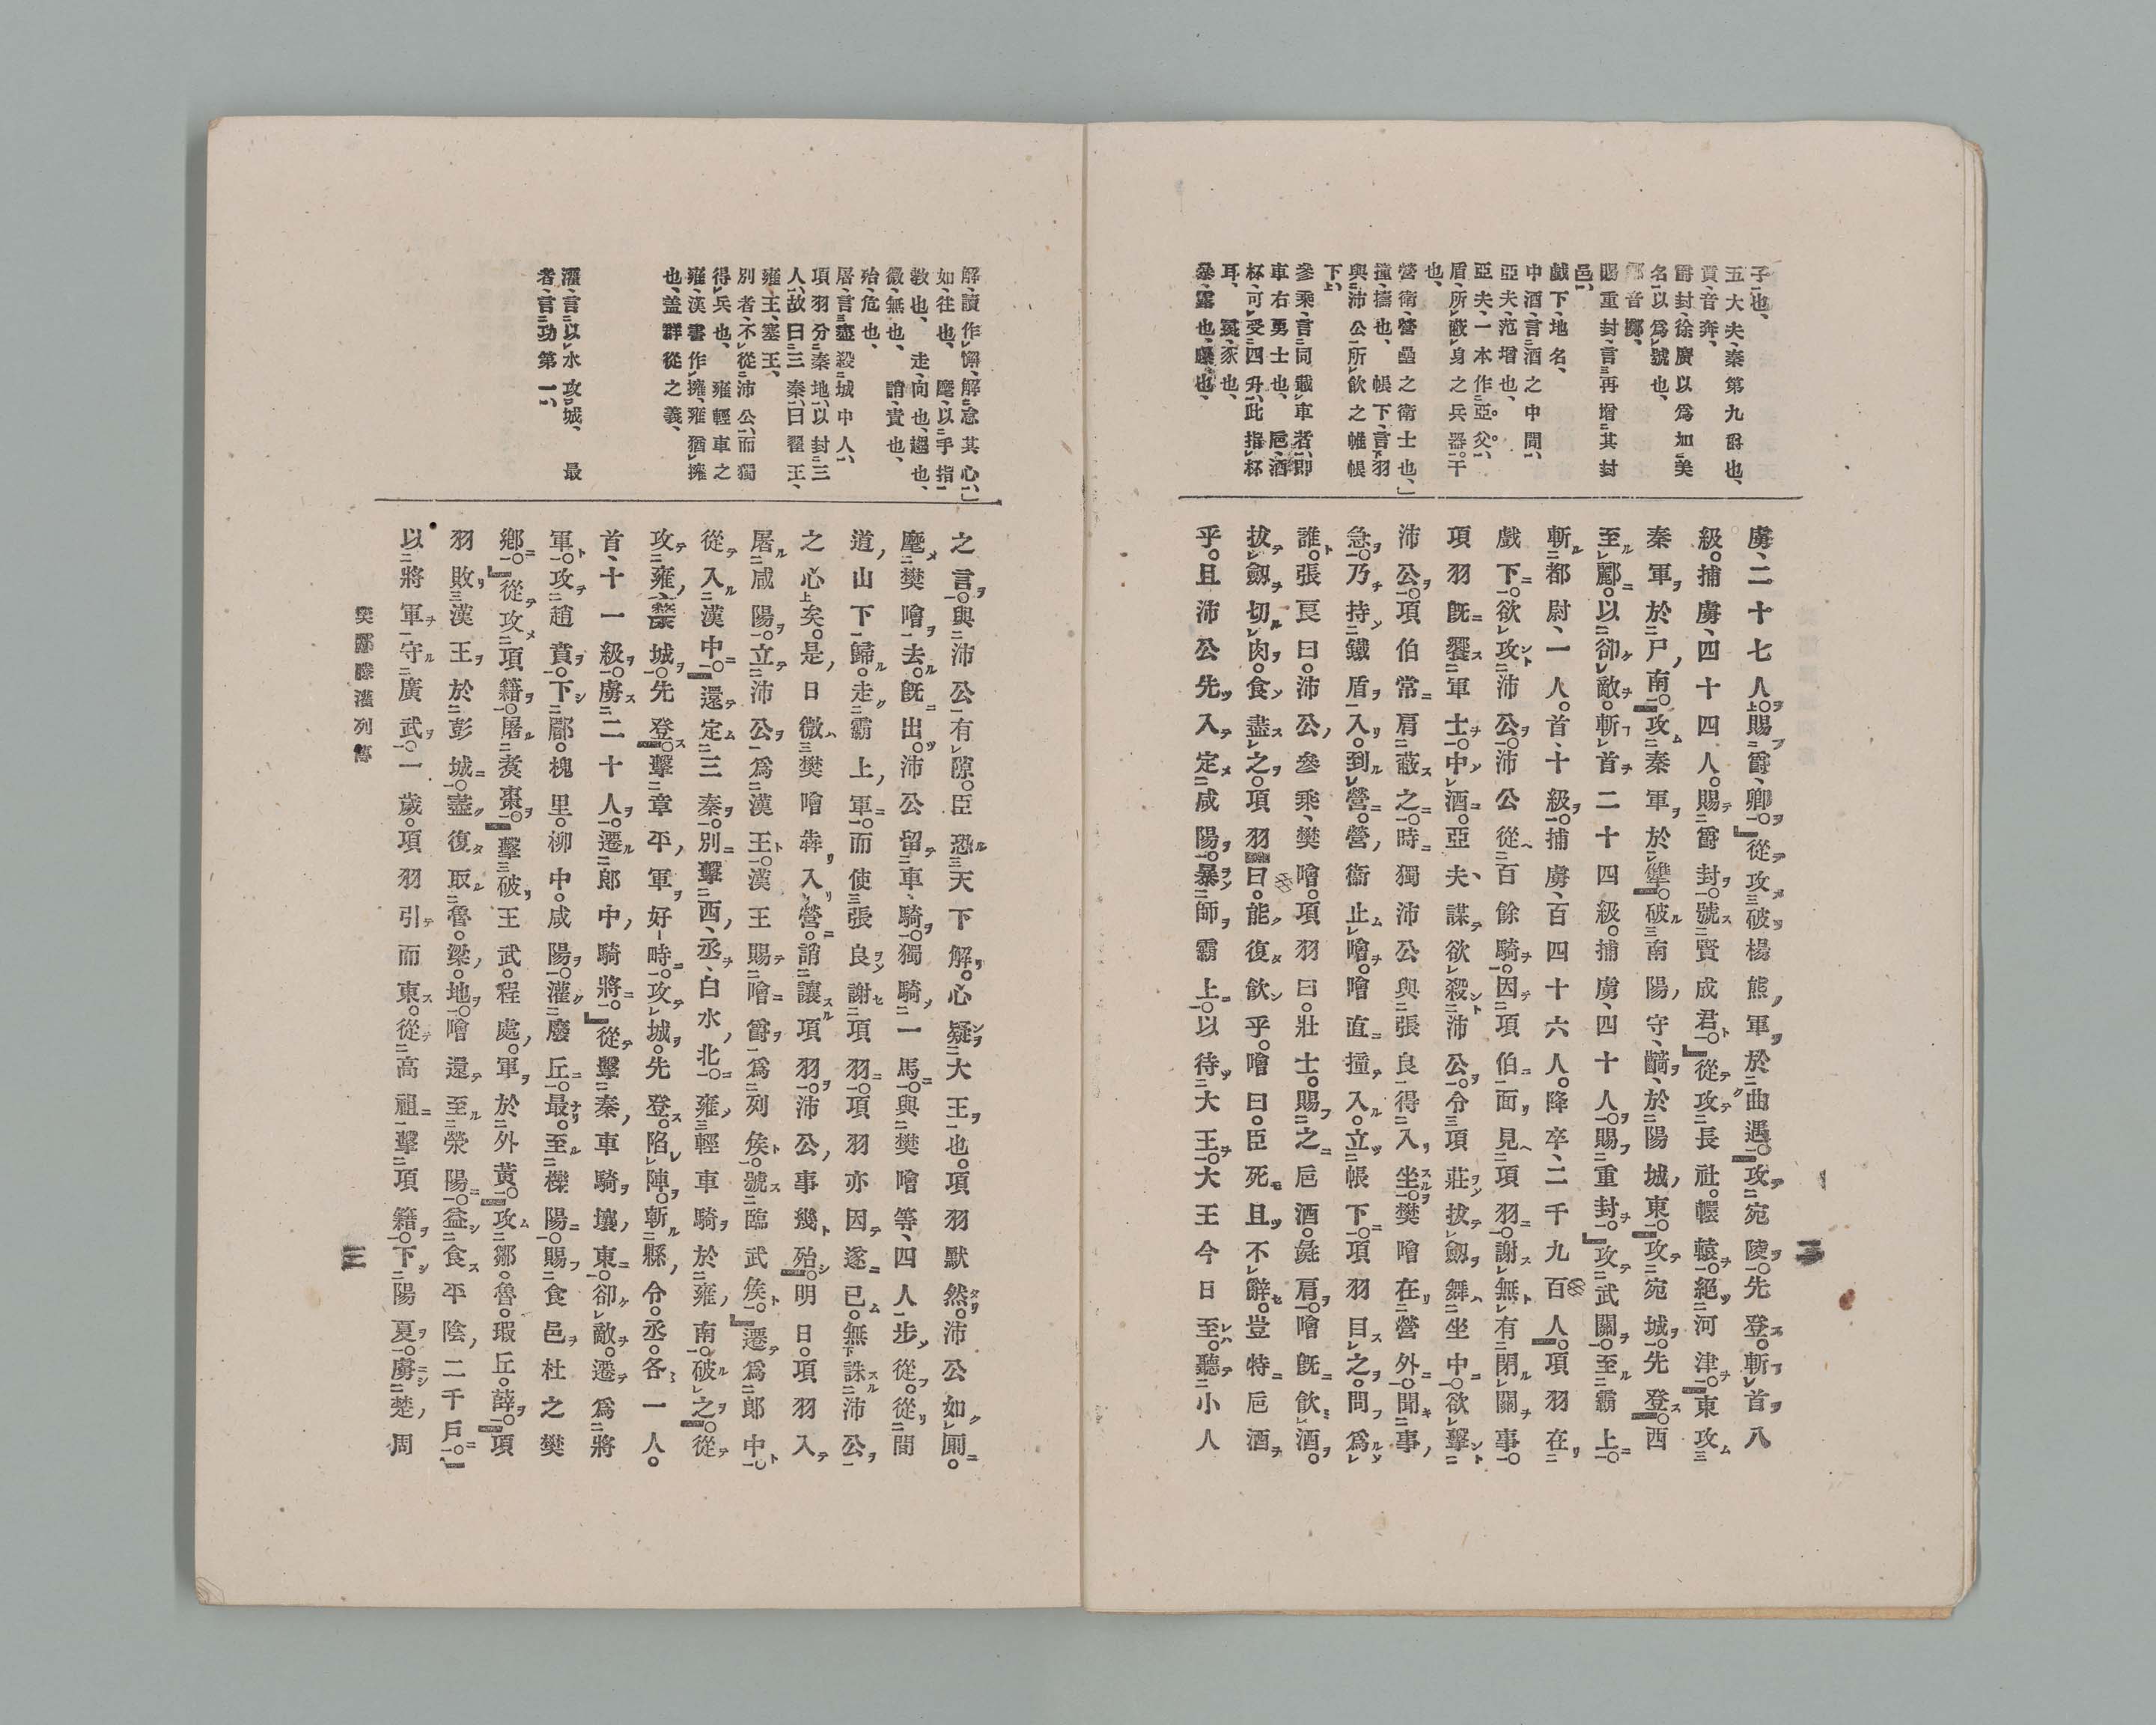 子也、
五大夫、秦第九爵也、
賁、音奔、
爵封、徐廣以爲加美
名以爲號也、
酈音擲、
賜重封、言再增其封
邑、
戲下、地名、
中酒、言酒之中間、
亞夫、范增也、
亞夫、一本作亞父、
盾、所蔽身之兵器。干
也、
營衛、營壘之衛士也、」
撞、擣也、帳下、言羽
與沛公所飲之帷帳
下、
參乘、言同載車者、即
車右勇士也、巵、酒
杯、可受四升、此指杯
耳、彘、豕也、
暴、露也、曝也、
虜、二十七人。賜爵、卿。」從攻破楊熊軍於曲遇。攻宛陵。先登。斬首八
級。捕虜、四十四人。賜爵封。號賢成君。」從攻長社。轘轅。絕河津。東攻
秦軍於尸南。攻秦軍於犨。破南陽守、齮、於陽城東。攻宛城。先登。西
至酈。以卻敵。斬首二十四級。捕虜、四十人。賜重封。」攻武關。至霸上。
斬都尉、一人。首、十級。捕虜、百四十六人。降卒、二千九百人。項羽在
戲下。欲攻沛公。沛公從百餘騎。因項伯面見項羽。謝無有閉關事。
項羽既饗軍士。中酒。亞夫、謀欲殺沛公。令項莊拔劔舞坐中。欲擊
沛公。項伯常肩蔽之。時獨沛公與張良得入坐。樊噲在營外。聞事
急。乃持鐵盾入。到營。營衞止噲。噲直撞入。立帳下。項羽目之。問爲
誰。張良曰。沛公參乘、樊噲。項羽曰。壯士。賜之巵酒。彘肩。噲既飮酒。
拔劔切肉。食盡之。項羽曰。能復飮乎。噲曰。臣死且不辭。豈特巵酒
乎。且沛公先入定咸陽。暴師霸上。以待大王。大王今日至。聽小人
二
解、讀作懈、解怠其心、」
如、往也、麾、以手指
敎也、走、向也、趨也、
微、無也、誚、責也、
殆、危也、
屠、言盡殺城中人、
項羽分秦地、以封三
人、故曰三秦、曰翟王、
雍王、塞王、
別者、不從沛公、而獨
得兵也、雍輕車之
雍、漢書作擁、雍猶擁
也、盖群從之義、
灌、言以水攻城、最
者、言功第一、
之言。與沛公有隙。臣恐天下解。心疑大王也。項羽默然。沛公如廁。
麾樊噲去。既出。沛公留車、騎。獨騎一馬。與樊噲等、四人步從。從間
道山下歸。走霸上軍。而使張良謝項羽。項羽亦因遂已。無誅沛公
之心矣。是日微樊噲犇入營。誚讓項羽。沛公事幾殆。明日。項羽入
屠咸陽。立沛公爲漢王。漢王賜噲爵爲列侯。號臨武侯。」遷爲郎中。
從入漢中。還定三秦。別擊西、丞、白水北。雍輕車騎於雍南。破之。從
攻雍、斄城。先登。擊章平軍好畤。攻城。先登。陷陣。斬縣令。丞。各一人。
首、十一級。虜二十人。遷郎中騎將。」從擊秦車騎壤東。卻敵。遷爲將
軍。攻趙賁。下郿。槐里。柳中。咸陽。灌廢丘。最。至櫟陽。賜食邑杜之樊
鄉。」從攻項籍。屠煑棗。擊破王武。程處軍於外黃。攻鄒。魯。瑕丘。薛。項
羽敗漢王於彭城。盡復取魯。梁地。噲還至滎陽。益食平陰二千戶。
以將軍守廣武。一歲。項羽引而東。從高祖擊項籍。下陽夏。虜楚周
樊酈滕灌列傳
三